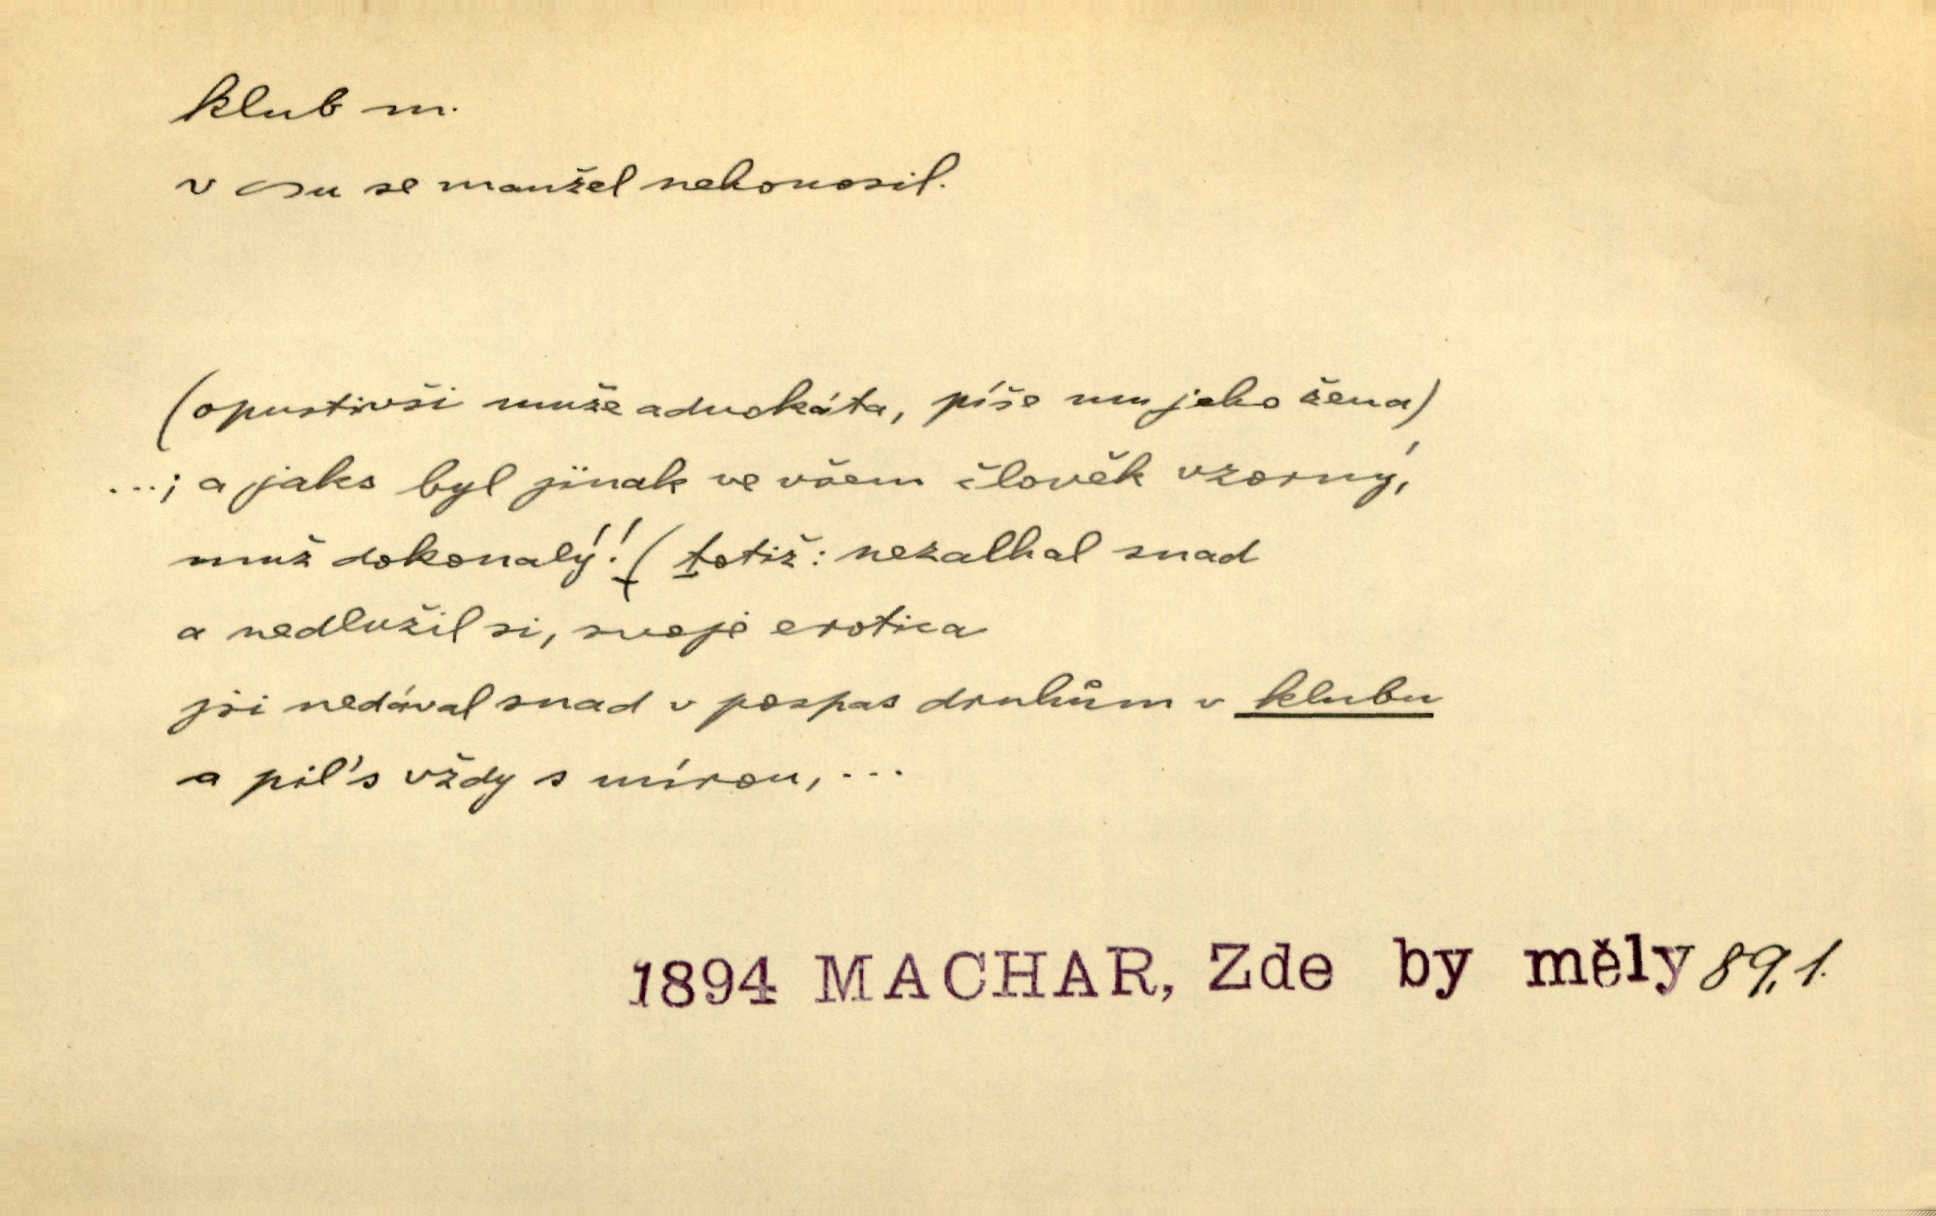 klub m.
v ~u se manžel nehonosil.
(opustivši muže advokáta, píše mu jeho žena)
...; a jaks byl jinak ve všem člověk vzorný,
muž dokonalý! (totiž: nezalhal snad
a nedlužil si, svoje erotica
jsi nedával snad v pospas druhům v klubu
a pil's vždy s mírou, ...
1894 MACHAR, Zde by měly 89,1.